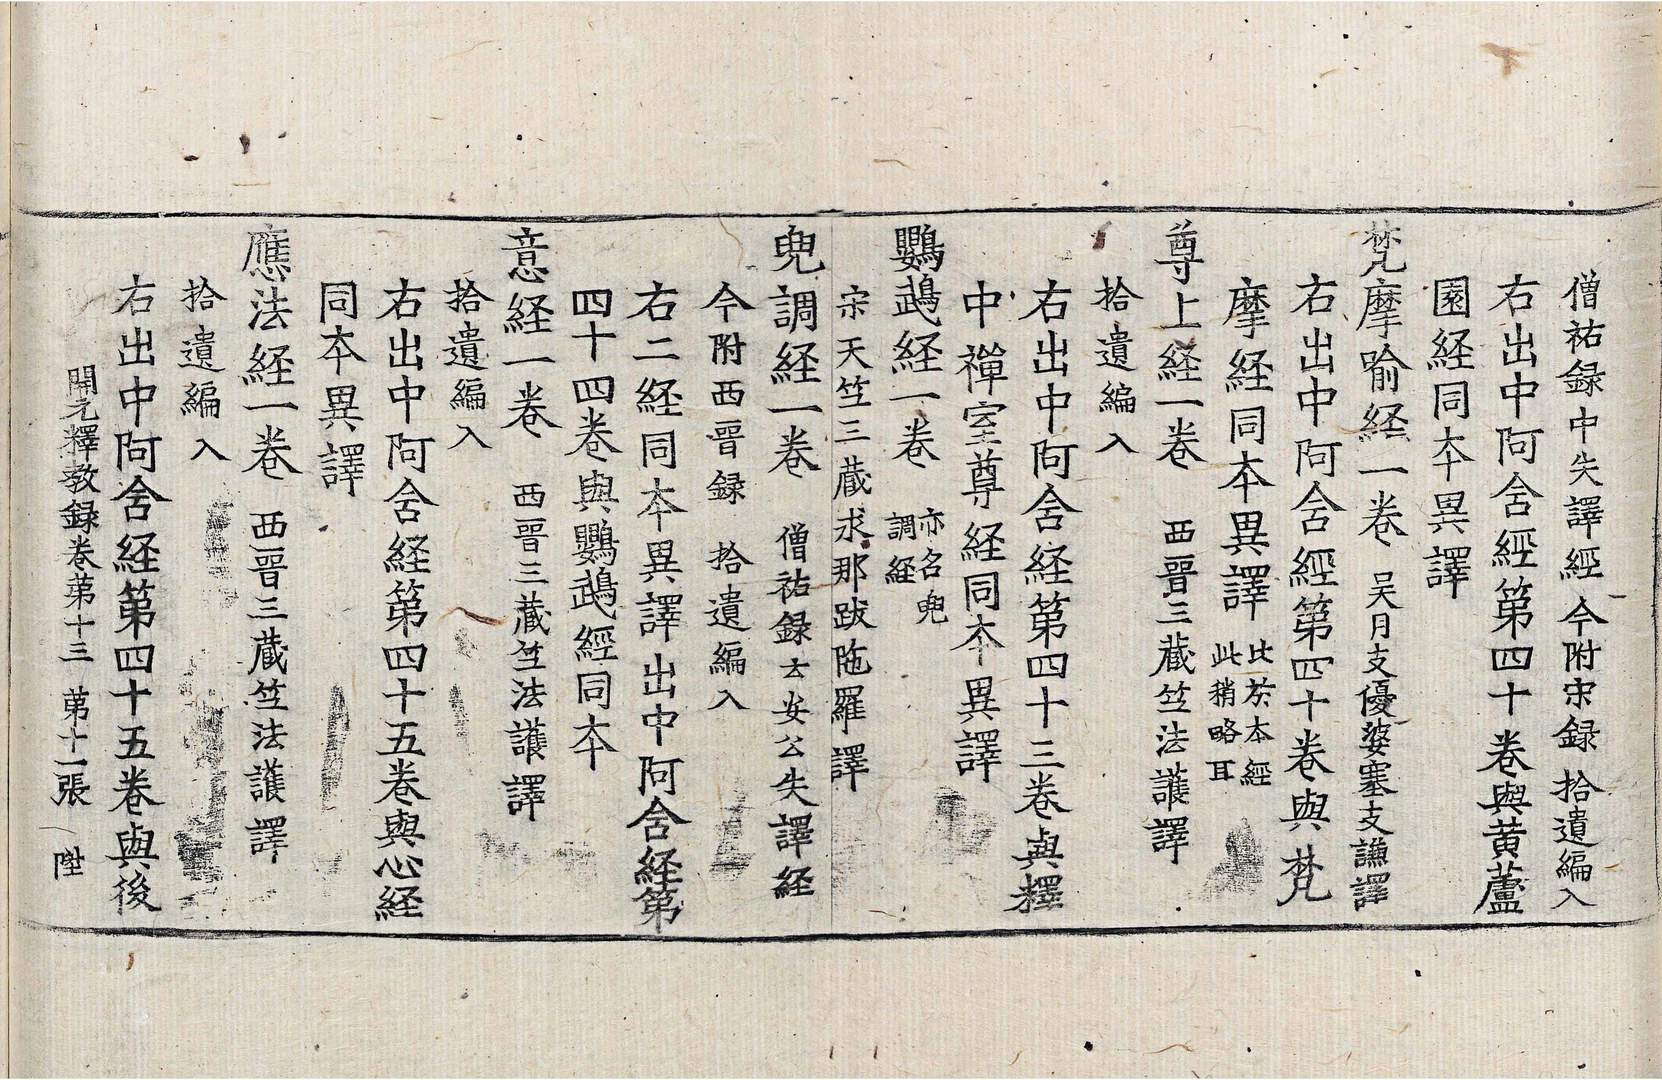 僧祐録中失譯經今附宋録 拾遺編入
右出中阿含經第四十卷與黄蘆
園経同本異譯
梵摩喻経一卷 吴月支優婆塞支謙譯
右出中阿含經第四十卷與梵
摩経同本異譯 比於本經此稍略耳
尊上経一卷 西晉三蔵竺法護譯
拾遺編入
右出中阿含経第四十三卷與釋
中禪室尊経同本異譯
鸚鵡経一卷 亦名兜調経
宋天竺三蔵求那跋陁羅譯
兜調経一卷 僧祐録云安公失譯経
今附西晉録 拾遺編入
右二経同本異譯出中阿含経第
四十四卷與鸚鵡經同本
意経一卷 西晉三蔵竺法護譯
拾遺編入
右出中阿含経第四十五卷與心経
同本異譯
應法経一卷 西晉三蔵竺法護譯
拾遺編入
右出中阿含経第四十五卷與後
開元釋教録卷第十三 第十一張 陞